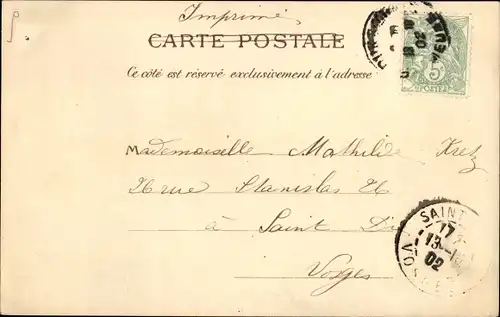 Imprimé
CARTE POSTALE
Ce côté est réservé exclusivement à l'adresse
5
POSTES
Mademoiselle Mathilde Kretz
26 rue Stanislas 26
à Saint Dié
Vosges
SAINT
13
02